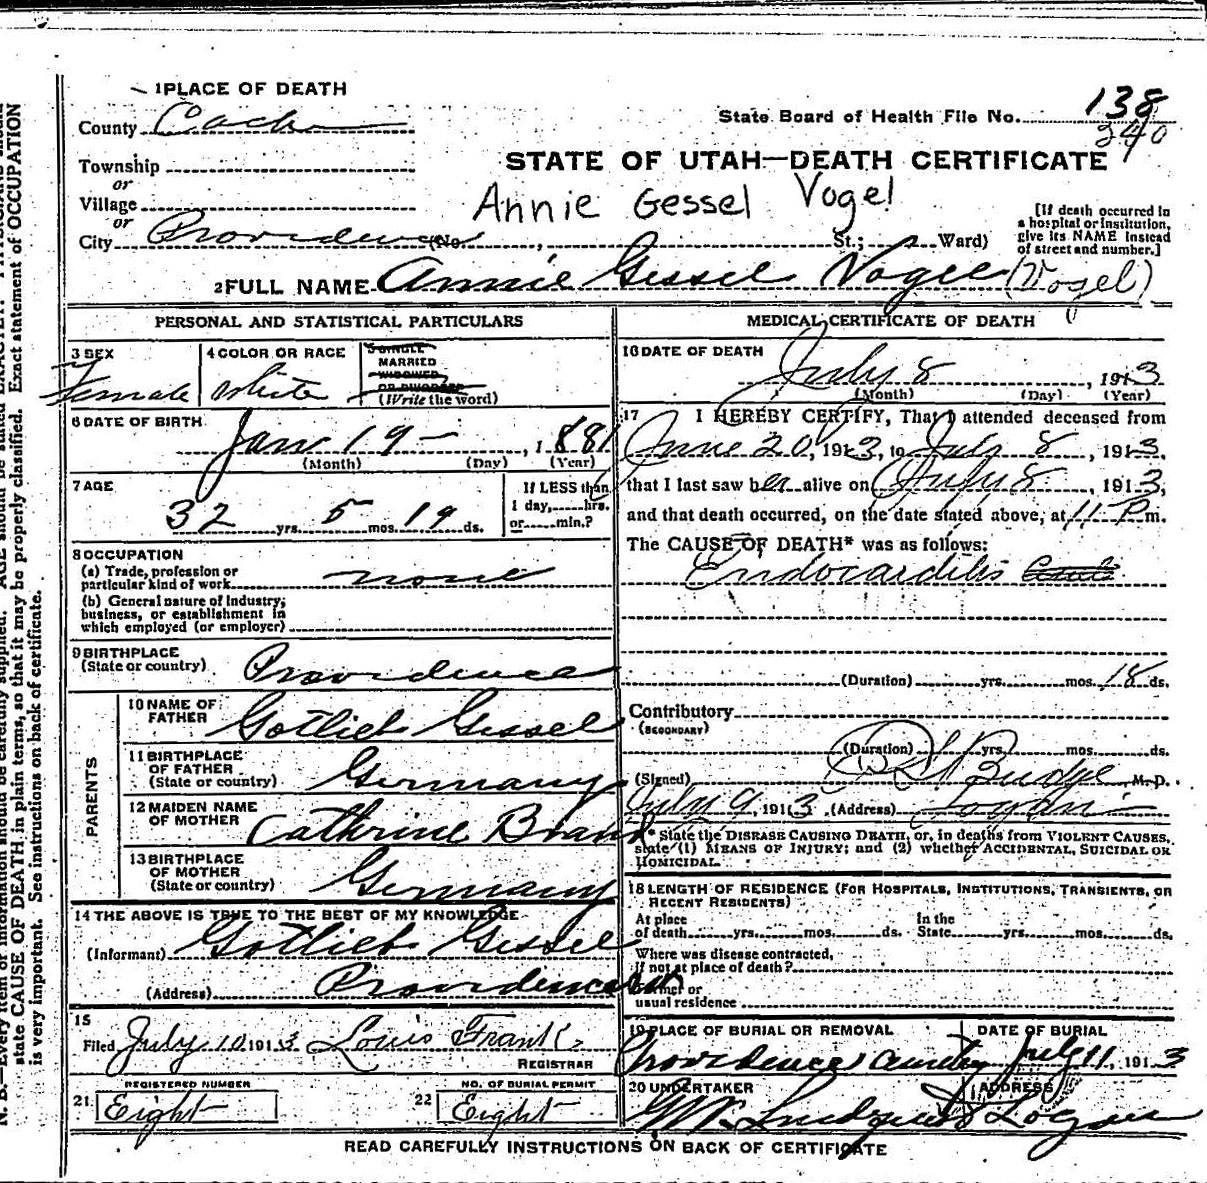 1 PLACE OF DEATH
County Cache
State Board of Health File No. 138
240
Township
or
Village
or
City Providence (No. , St.; Ward)
STATE OF UTAH—DEATH CERTIFICATE
Annie Gessel Vogel
[If death occurred in
a hospital or institution,
give its NAME instead
of street and number.]
2 FULL NAME Annie Gessel Vogel (Vogel)
PERSONAL AND STATISTICAL PARTICULARS
3 SEX
Female
4 COLOR OR RACE
White
5 SINGLE
MARRIED
WIDOWED
OR DIVORCED
(Write the word)
6 DATE OF BIRTH
Jan 19 , 1881
(Month) (Day) (Year)
7 AGE
32 yrs. 5 mos. 19 ds.
If LESS than
1 day, hrs.
or min.?
8 OCCUPATION
(a) Trade, profession or
particular kind of work none
(b) General nature of Industry,
business, or establishment in
which employed (or employer)
9 BIRTHPLACE
(State or country) Providence
PARENTS
10 NAME OF
FATHER Gotlieb Gessel
11 BIRTHPLACE
OF FATHER
(State or country) Germany
12 MAIDEN NAME
OF MOTHER Cathrine Brand
13 BIRTHPLACE
OF MOTHER
(State or country) Germany
14 THE ABOVE IS TRUE TO THE BEST OF MY KNOWLEDGE
(Informant) Gotlieb Gessel
(Address) Providence
15
Filed July 10 1913 Louis Frank
REGISTRAR
REGISTERED NUMBER
21 Eight
NO. OF BURIAL PERMIT
22 Eight
MEDICAL CERTIFICATE OF DEATH
16 DATE OF DEATH
July 8 , 1913
(Month) (Day) (Year)
17 I HEREBY CERTIFY, That I attended deceased from
June 20, 1913, to July 8, 1913,
that I last saw her alive on July 8, 1913,
and that death occurred, on the date stated above, at 11 P m.
The CAUSE OF DEATH* was as follows:
Endocarditis
(Duration) yrs. mos. 18 ds.
Contributory
(SECONDARY)
(Duration) yrs. mos. ds.
(Signed) Budge M. D.
July 9, 1913 (Address) Logan
* State the DISEASE CAUSING DEATH, or, in deaths from VIOLENT CAUSES,
state (1) MEANS OF INJURY; and (2) whether ACCIDENTAL, SUICIDAL OR
HOMICIDAL.
18 LENGTH OF RESIDENCE (FOR HOSPITALS, INSTITUTIONS, TRANSIENTS, OR
RECENT RESIDENTS)
At place
of death yrs. mos. ds.
In the
State yrs. mos. ds.
Where was disease contracted,
if not at place of death?
Former or
usual residence
19 PLACE OF BURIAL OR REMOVAL
Providence Cemetery
DATE OF BURIAL
July 11, 1913
20 UNDERTAKER
Lundquist
ADDRESS
Logan
READ CAREFULLY INSTRUCTIONS ON BACK OF CERTIFICATE
state CAUSE OF DEATH in plain terms, so that it may be properly classified. Exact statement of OCCUPATION
is very important. See instructions on back of certificate.